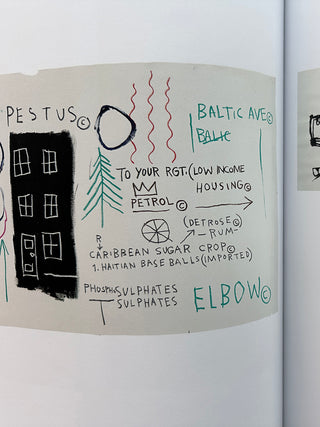 PESTUS©
BALTIC AVE©
BALTIC
TO YOUR RGT. (LOW INCOME
HOUSING©
PETROL ©
(DETROSE©)
—RUM—
R
CARIBBEAN SUGAR CROP©
1. HAITIAN BASE BALLS (IMPORTED)
PHOSPHSULPHATES
SULPHATES
ELBOW©